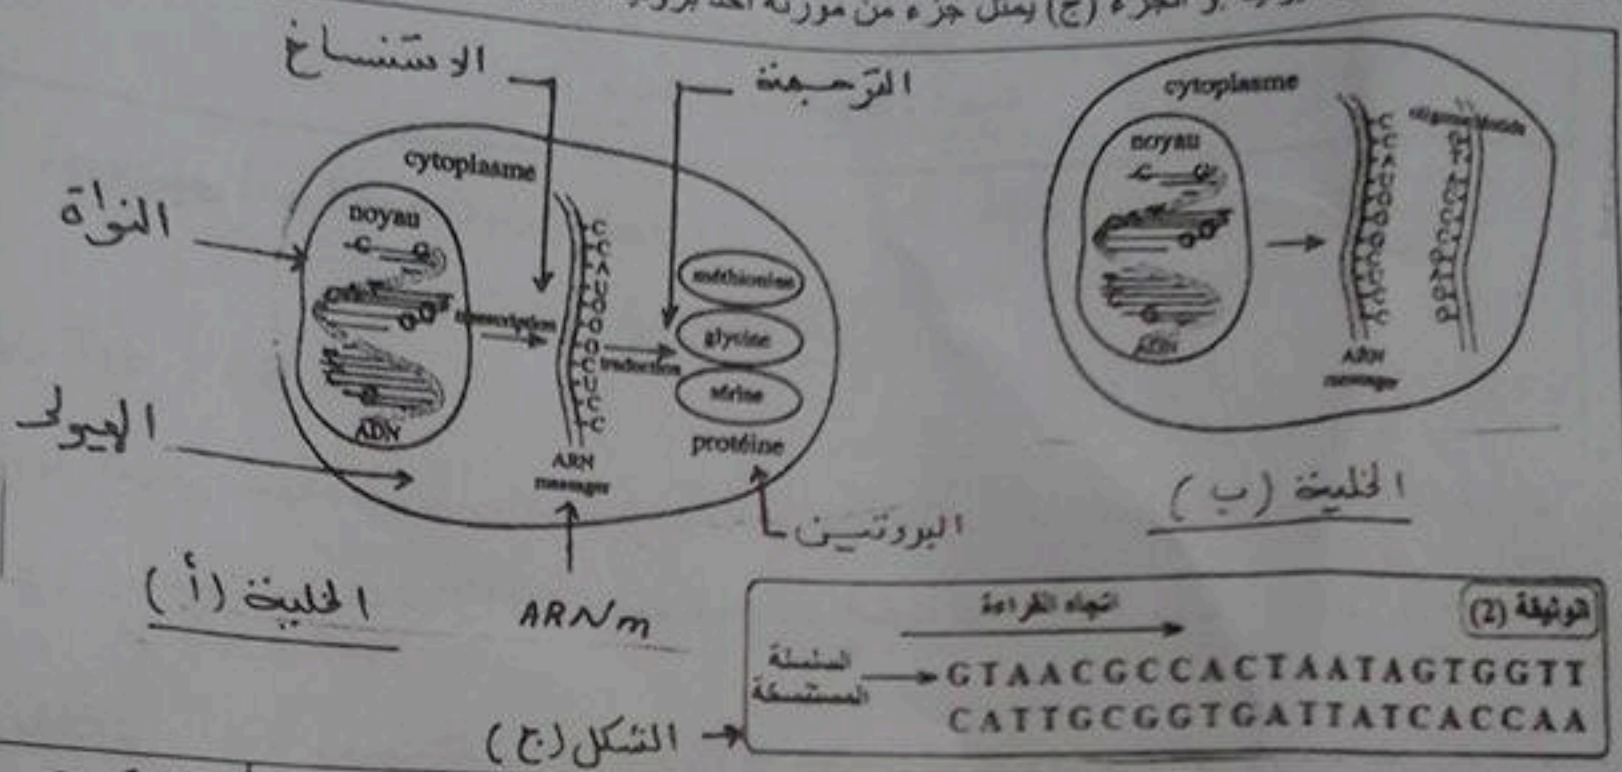 (ج) يمثل جزء من مورثة
الاستنساخ
الترجمة
النواة
الهيولى
cytoplasme
noyau
ADN
transcription
C C A U G G G C U C C
ARN
messager
traduction
méthionine
glycine
sérine
protéine
البروتين
ARNm
الخلية (أ)
cytoplasme
noyau
ADN
ARN
messager
الخلية (ب)
الوثيقة (2)
اتجاه القراءة
السلسلة
المستنسخة
GTAACGCCACTAATAGTGGTT
CATTGCGGTGATTATCACCAA
الشكل (ج)